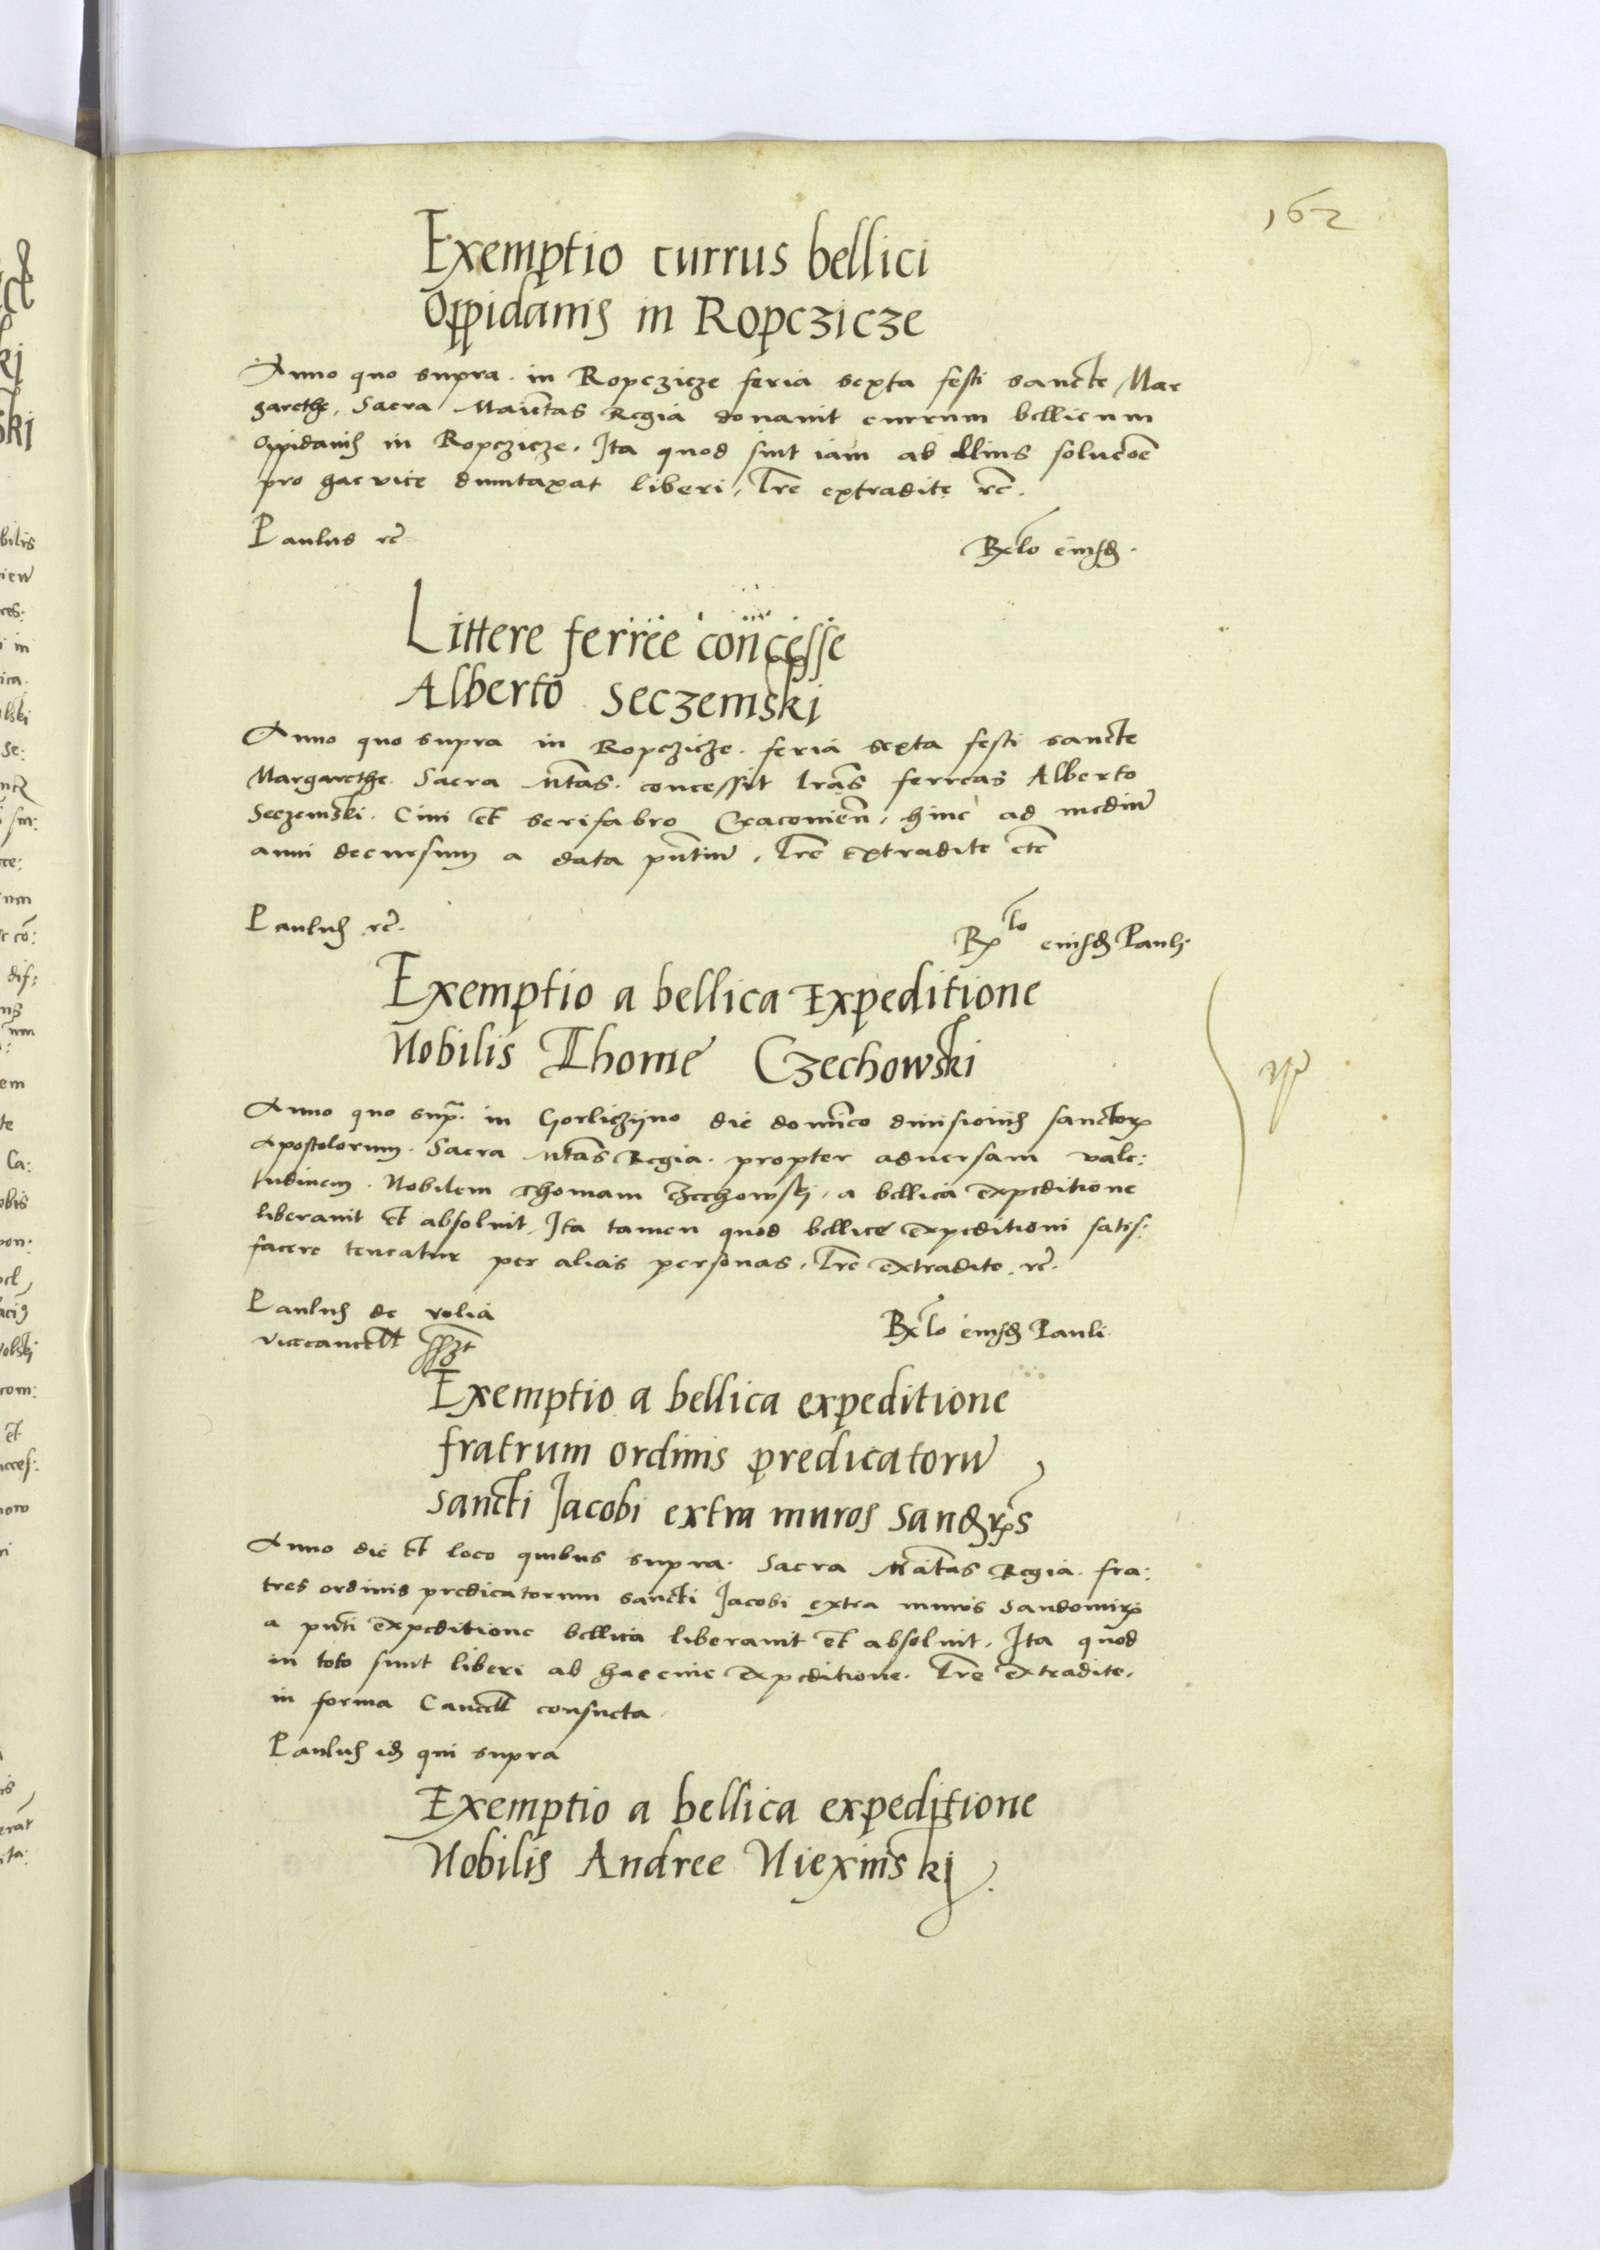 162
Exemptio currus bellici
Oppidanis in Ropczicze
Anno quo supra. in Ropczicze feria sexta festi sancte Mar
garethe, Sacra Maiestas Regia donavit currum bellicum
Oppidanis in Ropczicze. Ita quod sint iam ab illius solucõe
pro hac vice duntaxat liberi, Lrẽ extradite rc̃.
Paulus rc̃
Rx̃lo eiusd̃.
Littere ferree concesse
Alberto Seczemski
Anno quo supra in Ropczicze. feria sexta festi sancte
Margarethe. Sacra Mtãs. concessit lrãs ferreas Alberto
Seczemski. Civi et serifabro Cracovieñ, hinc ad mediũ
anni decursum a data pñtiũ, Lrẽ extradite etc̃
Paulus rc̃.
Rx lo eiusd̃ Pauli.
Exemptio a bellica Expeditione
Nobilis Thome Czechowski
Anno quo sup̃. in Gorliczijno die domĩco divisionis sanctorz
Apostolorum. Sacra Mtãs Regia. propter adversam vale:
tudinem. Nobilem Thomam Czechowskj, a bellica expeditione
liberavit et absolvit, Ita tamen quod bellice expeditioni satis:
facere teneatur per alias personas, Lrẽ extradite rc̃.
Paulus de volia
vicecancell sszt
Rx̃lo eiusd̃ Pauli
Exemptio a bellica expeditione
fratrum ordinis predicatorũ
sancti Jacobi extra muros Sand̃rs
Anno die et loco quibus supra. Sacra Matãs Regia. fra:
tres ordinis predicatorum sancti Jacobi extra muros Sandomirz
a pñti expeditione bellica liberavit et absolvit. Ita quod
in toto sunt liberi ab hac eius expeditione. Lrẽ extradite,
in forma Cancell consueta.
Paulus id̃ qui supra
Exemptio a bellica expeditione
Nobilis Andree Niexinskj.